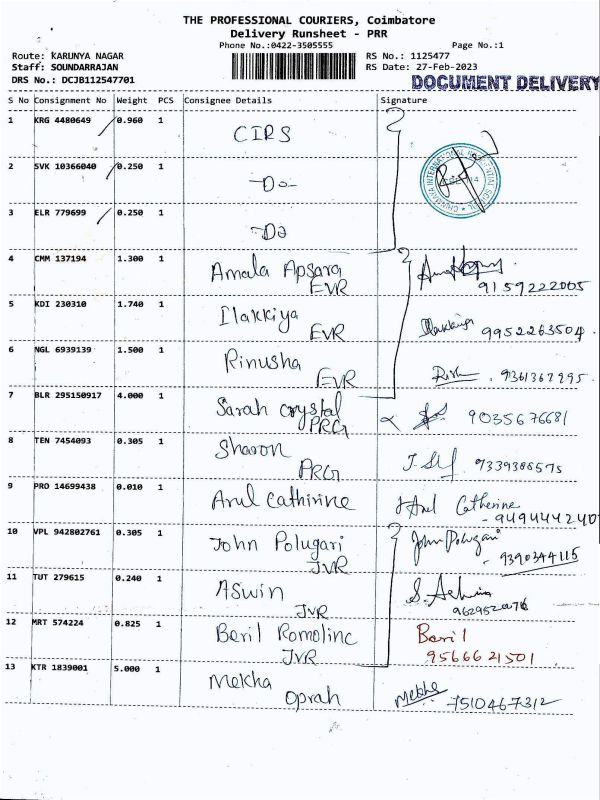 THE PROFESSIONAL COURIERS, Coimbatore
Delivery Runsheet - PRR
Phone No.:0422-3505555 Page No.:1
Route: KARUNYA NAGAR RS No.: 1125477
Staff: SOUNDARRAJAN RS Date: 27-Feb-2023
DRS No.: DCJB112547701 DOCUMENT DELIVERY
S No Consignment No Weight PCS Consignee Details Signature
1 KRG 4480649 0.960 1 CIRS
2 SVK 10366040 0.250 1 -Do-
3 ELR 779699 0.250 1 -Do
4 CMM 137194 1.300 1 Amala Apsara
EVR 9159222005
5 KDI 230310 1.740 1 Ilakkiya
EVR Ilakkiya 9952263504
6 NGL 6939139 1.500 1 Rinusha
EVR
7 BLR 295150917 4.000 1 Sarah crystal
PRG 9035676681
8 TEN 7454093 0.305 1 Sharon
PRG 9339386575
9 PRO 14699438 0.010 1 Arul cathirine Arul Catherine
- 9494442407
10 VPL 942802761 0.305 1 John Polugari John Polugari
JVR - 9390344115
11 TUT 279615 0.240 1 Aswin
JVR
12 MRT 574224 0.825 1 Beril Romolinc Beril
JVR 9566621501
13 KTR 1839001 5.000 1 Mekha Mekha 7510467312
Oprah